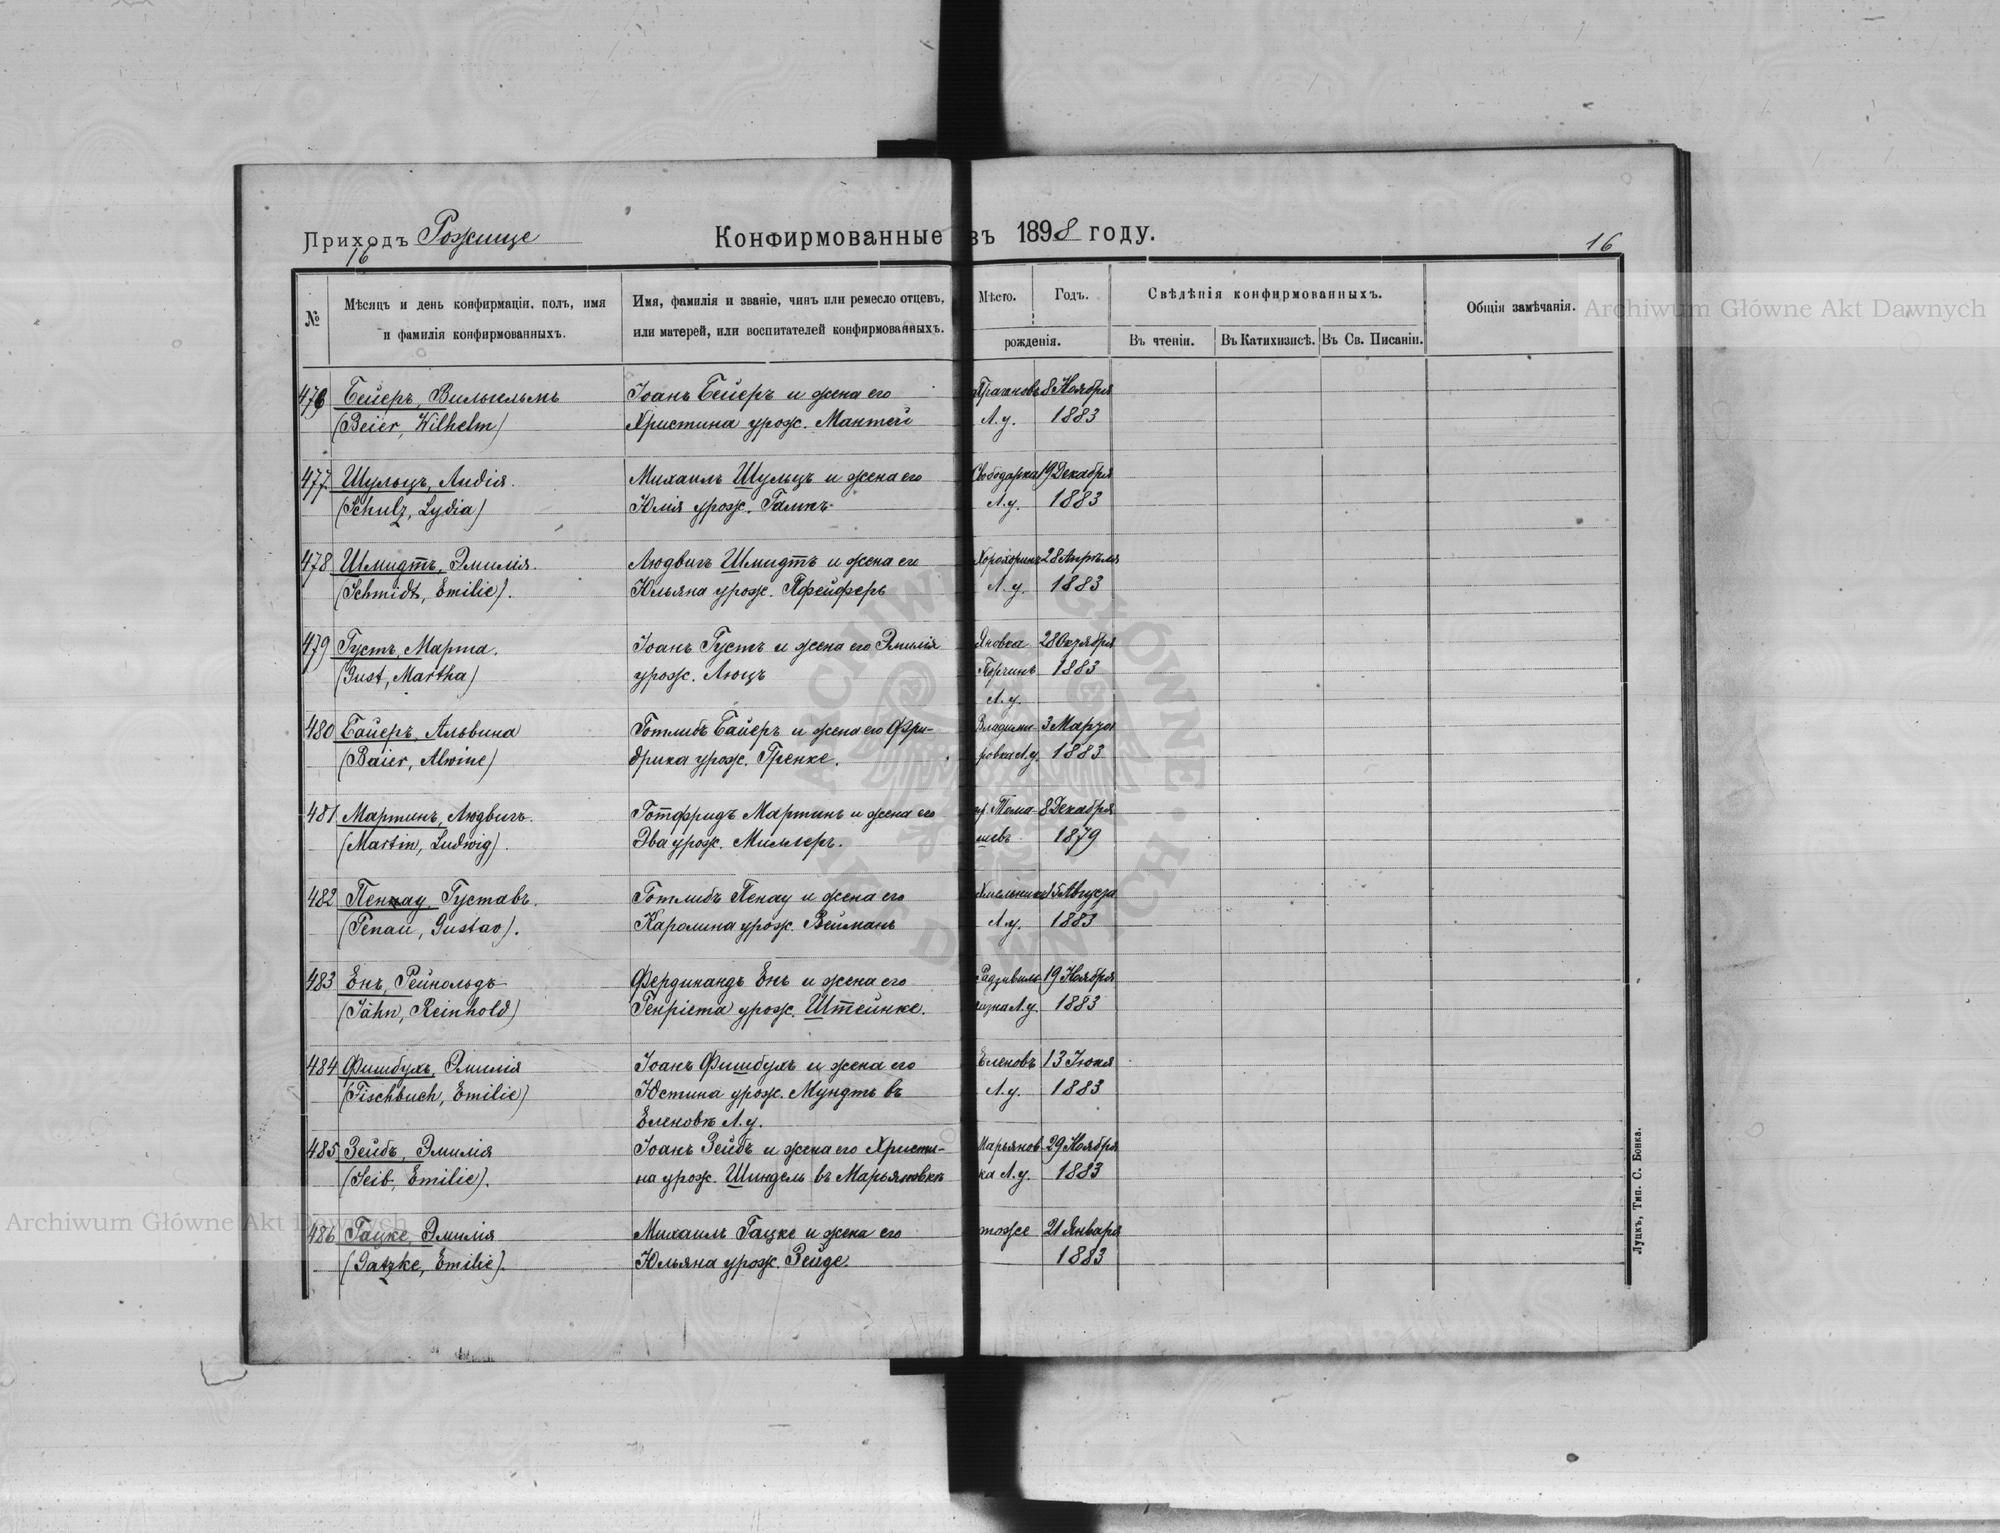 Приходъ Рожище
Конфирмованные въ 1898 году.
16
16
№
Мѣсяцъ и день конфирмаціи, полъ, имя
и фамилія конфирмованныхъ.
Имя, фамилія и званіе, чинъ или ремесло отцевъ,
или матерей, или воспитателей конфирмованныхъ.
Мѣсто.
Годъ.
рожденія.
Свѣдѣнія конфирмованныхъ.
Въ чтеніи.
Въ Катихизисѣ.
Въ Св. Писаніи.
Общія замѣчанія.
476 Бейеръ, Вильгельмъ Іоанъ Бейеръ и жена его 8 Ноября
(Beier, Wilhelm) Христина урож. Мантей Л.у. 1883
477 Шульцъ, Лидія. Михаилъ Шульцъ и жена его Свободарка 19 Декабря
(Schulz, Lydia) Юлія урож. Л.у. 1883
478 Шмидтъ, Эмилія. Людвигъ Шмидтъ и жена его Хорохоринъ 28 Апрѣля
(Schmidt, Emilie). Юльяна урож. Пфейферъ Л.у. 1883
479 Густъ, Марта. Іоанъ Густъ и жена его Эмилія Яновка 28 Октября
(Gust, Martha) урож. Люцъ Торчинъ 1883
Л.у.
480 Байеръ, Альвина Готлибъ Байеръ и жена его Фри- Владими- 3 Марта
(Baier, Alwine) дрика урож. Гренке. ровка Л.у. 1883
481 Мартинъ, Людвигъ. Готфридъ Мартинъ и жена его Тома- 8 Декабря
(Martin, Ludwig). Эва урож. Миллеръ. шевъ 1879
482 Пенау, Густавъ. Готлибъ Пенау и жена его 15 Августа
(Penau, Gustav). Каролина урож. Вейманъ Л.у. 1883
483 Енъ, Рейнольдъ Фердинандъ Енъ и жена его Радзивил- 19 Ноября
(Jähn, Reinhold) Генріета урож. Штейнке. Л.у. 1883
484 Фишбухъ, Эмилія Іоанъ Фишбухъ и жена его Еленовъ 13 Іюня
(Fischbuch, Emilie) Юстина урож. Мундтъ въ Л.у. 1883
Еленовкѣ Л.у.
485 Зейбъ, Эмилія Іоанъ Зейбъ и жена его Христи- Марьянов- 29 Ноября
(Seib, Emilie). на урож. Шиндель въ Марьяновкѣ ка Л.у. 1883
486 Гацке, Эмилія Михаилъ Гацке и жена его тоже 21 Января
(Gatzke, Emilie). Юльяна урож. Зейде. 1883
Луцкъ, Тип. С. Бонка.
Archiwum Główne Akt Dawnych
Archiwum Główne Akt Dawnych
ARCHIWUM GŁÓWNE AKT DAWNYCH